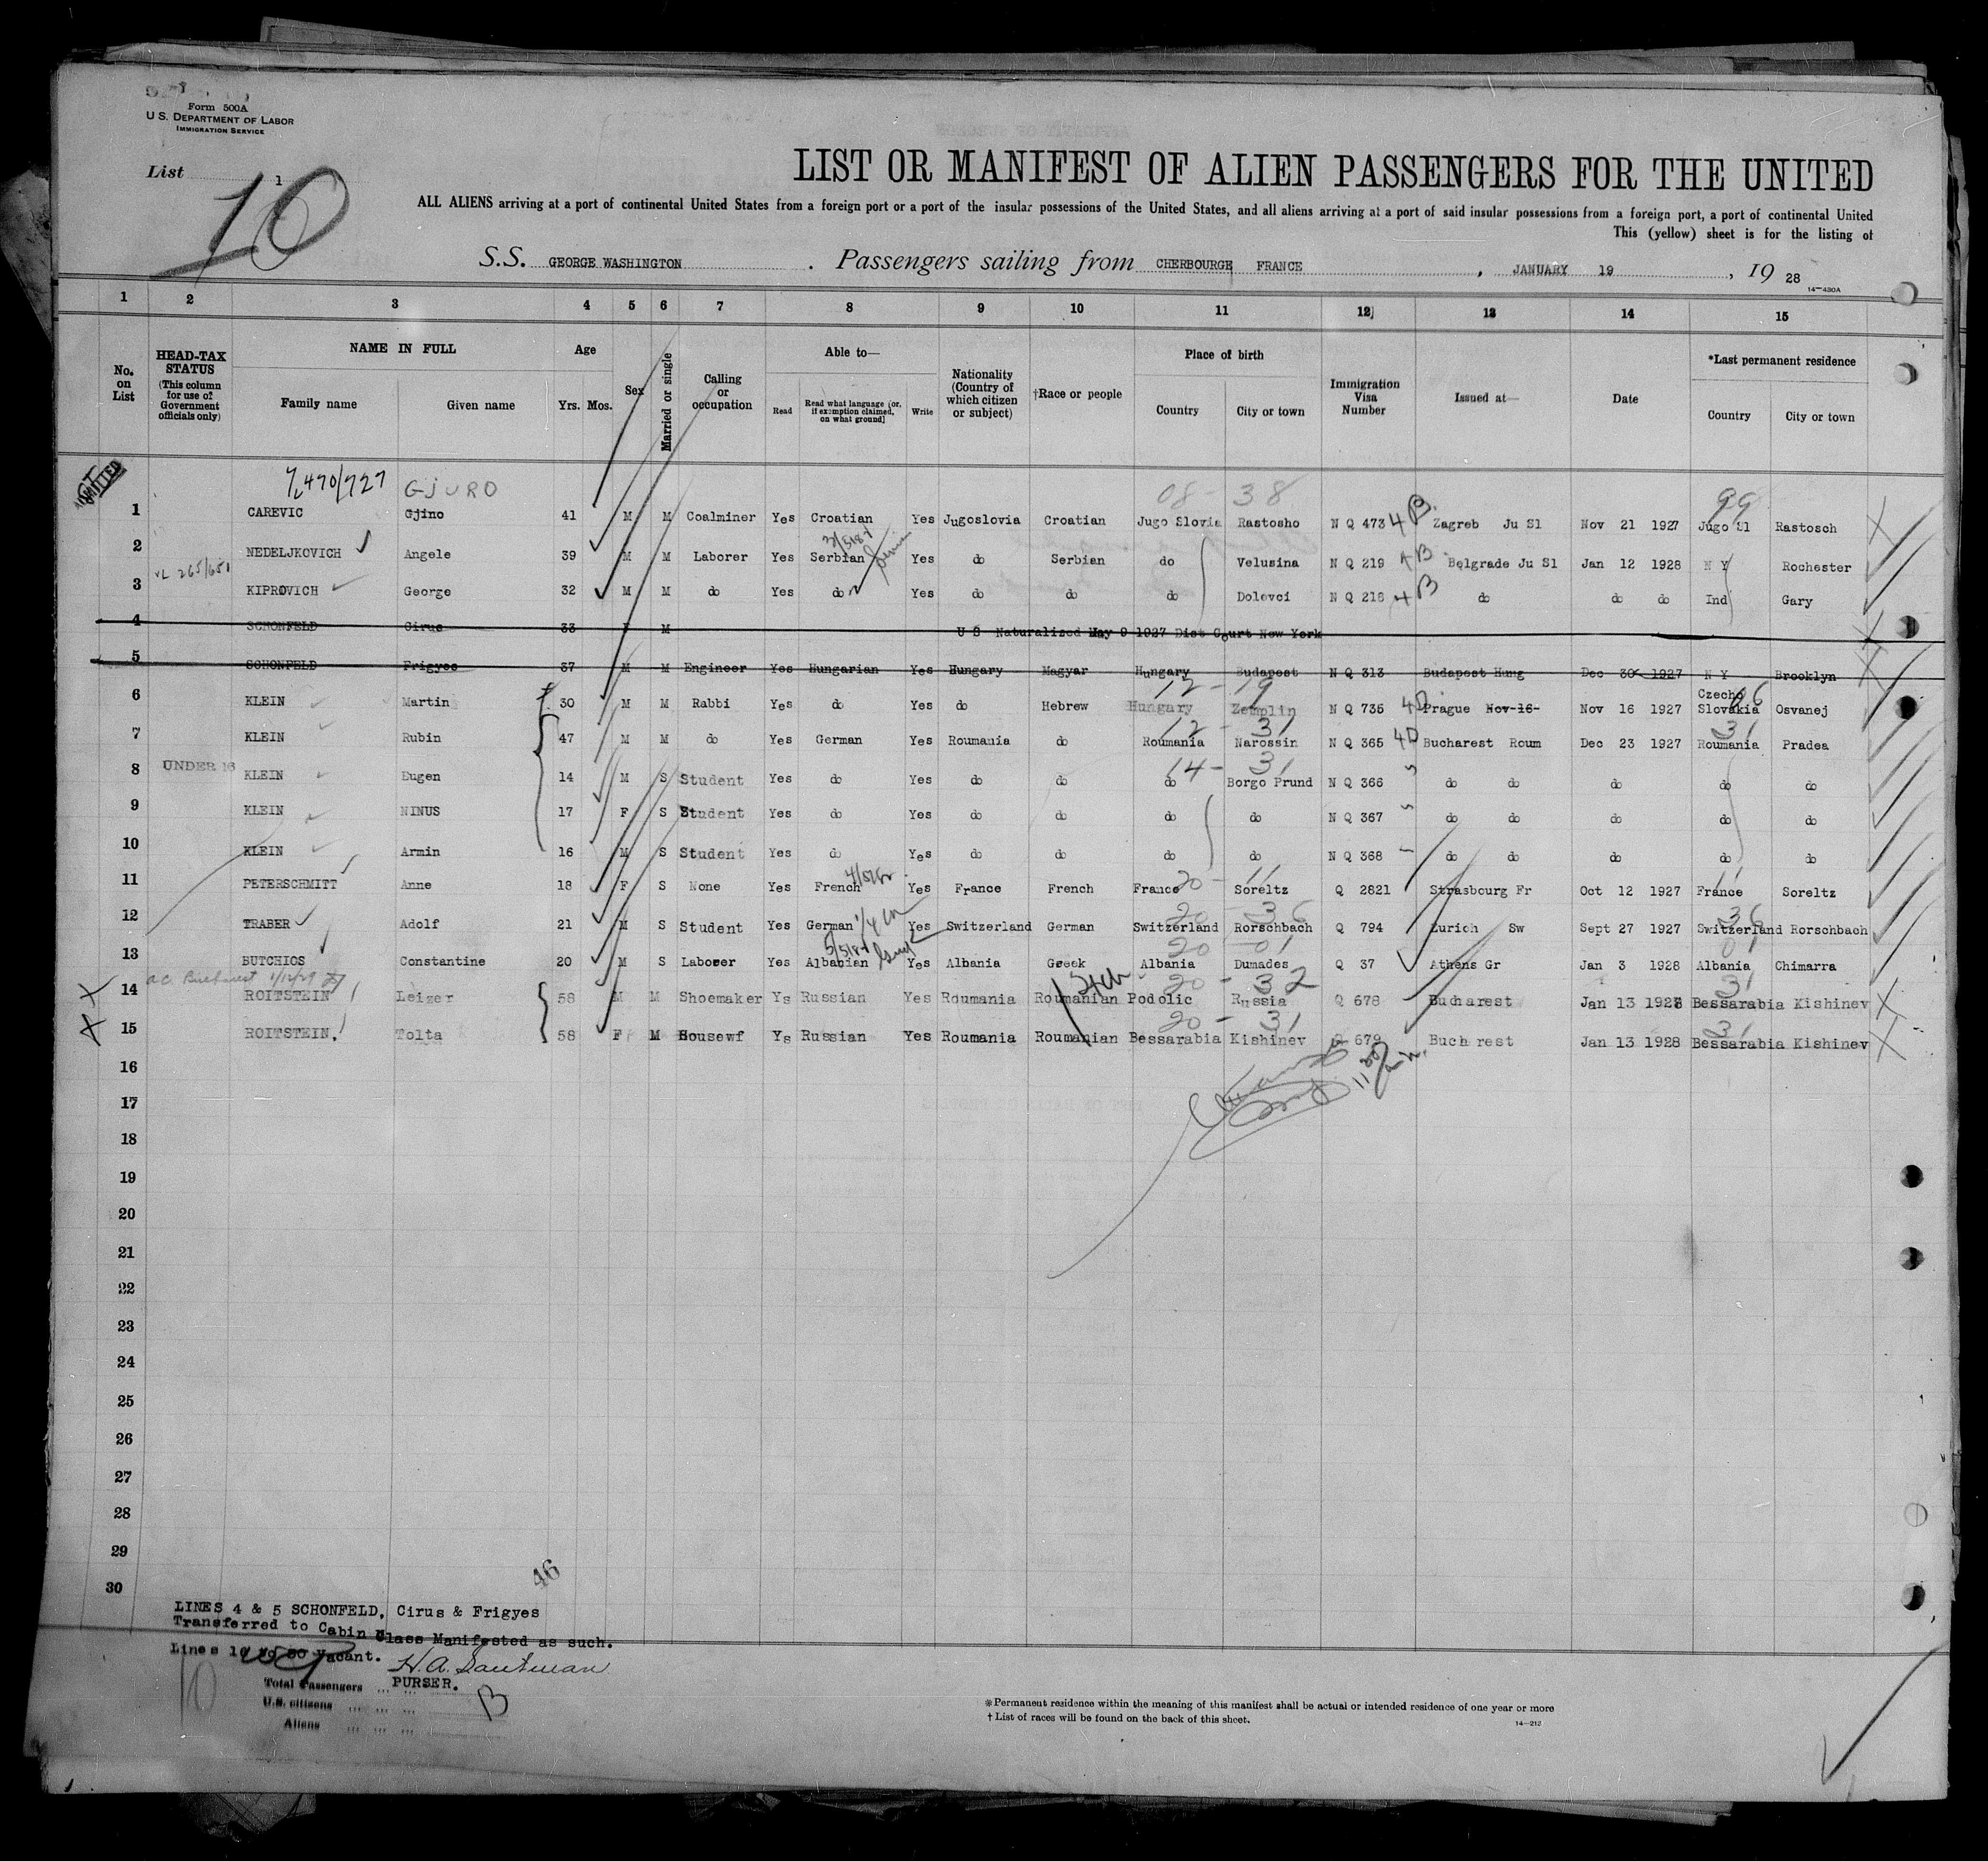 Form 500A
U. S. DEPARTMENT OF LABOR
IMMIGRATION SERVICE
List 1
10
LIST OR MANIFEST OF ALIEN PASSENGERS FOR THE UNITED
ALL ALIENS arriving at a port of continental United States from a foreign port or a port of the insular possessions of the United States, and all aliens arriving at a port of said insular possessions from a foreign port, a port of continental United
This (yellow) sheet is for the listing of
S.S. GEORGE WASHINGTON . Passengers sailing from CHERBOURGE FRANCE , JANUARY 19 , 19 28
14—430A
1 2 3 4 5 6 7 8 9 10 11 12 13 14 15
No. on List
HEAD-TAX STATUS (This column for use of Government officials only)
NAME IN FULL
Family name Given name
Age
Yrs. Mos.
Sex
Married or single
Calling or occupation
Able to—
Read Read what language [or, if exemption claimed, on what ground] Write
Nationality (Country of which citizen or subject)
†Race or people
Place of birth
Country City or town
Immigration Visa Number
Issued at—
Date
*Last permanent residence
Country City or town
ADMITTED
GJURO 08 - 38 99
1 CAREVIC Gjino 41 M M Coalminer Yes Croatian Yes Jugoslovia Croatian Jugo Slovia Rastosho N Q 473 4B Zagreb Ju Sl Nov 21 1927 Jugo Sl Rastosch
2 NEDELJKOVICH Angele 39 M M Laborer Yes Serbian Yes do Serbian do Velusina N Q 219 4B Belgrade Ju Sl Jan 12 1928 N Y Rochester
3 KIPROVICH George 32 M M do Yes do Yes do do do Dolovci N Q 218 4B do do do Ind Gary
4 SCHONFELD Cirus 33 F M U S Naturalized May 9 1927 Dist Court New York
5 SCHONFELD Frigyes 37 M M Engineer Yes Hungarian Yes Hungary Magyar Hungary Budapest N Q 313 Budapest Hung Dec 30 1927 N Y Brooklyn
12 - 19
6 KLEIN Martin 30 M M Rabbi Yes do Yes do Hebrew Hungary Zemplin N Q 735 4D Prague Nov-16- Nov 16 1927 Czecho Slovakia Osvanej
12 - 31 31
7 KLEIN Rubin 47 M M do Yes German Yes Roumania do Roumania Narossin N Q 365 4D Bucharest Roum Dec 23 1927 Roumania Pradea
14 - 31
8 UNDER 16 KLEIN Eugen 14 M S Student Yes do Yes do do do Borgo Prund N Q 366 do do do do do
9 KLEIN NINUS 17 F S Student Yes do Yes do do do do N Q 367 do do do do do
10 KLEIN Armin 16 M S Student Yes do Yes do do do do N Q 368 do do do do do
20 - 11 11
11 PETERSCHMITT Anne 18 F S None Yes French Yes France French France Soreltz Q 2821 Strasbourg Fr Oct 12 1927 France Soreltz
20 - 36 36
12 TRABER Adolf 21 M S Student Yes German Yes Switzerland German Switzerland Rorschbach Q 794 Zurich Sw Sept 27 1927 Switzerland Rorschbach
20 - 01 01
13 BUTCHIOS Constantine 20 M S Laborer Yes Albanian Yes Albania Greek Albania Dumades Q 37 Athens Gr Jan 3 1928 Albania Chimarra
20 - 32 31
14 ROITSTEIN Leizer 58 M M Shoemaker Ys Russian Yes Roumania Roumanian Podolic Russia Q 678 Bucharest Jan 13 1928 Bessarabia Kishinev
20 - 31 31
15 ROITSTEIN. Tolta 58 F M Housewf Ys Russian Yes Roumania Roumanian Bessarabia Kishinev Q 679 Buch rest Jan 13 1928 Bessarabia Kishinev
16
17
18
19
20
21
22
23
24
25
26
27
28
29
30
46
LINES 4 & 5 SCHONFELD, Cirus & Frigyes
Transferred to Cabin Class Manifested as such.
Lines 16 to 30 Vacant.
PURSER.
10
Total Passengers
U.S. citizens
Aliens
*Permanent residence within the meaning of this manifest shall be actual or intended residence of one year or more
†List of races will be found on the back of this sheet.
14—212